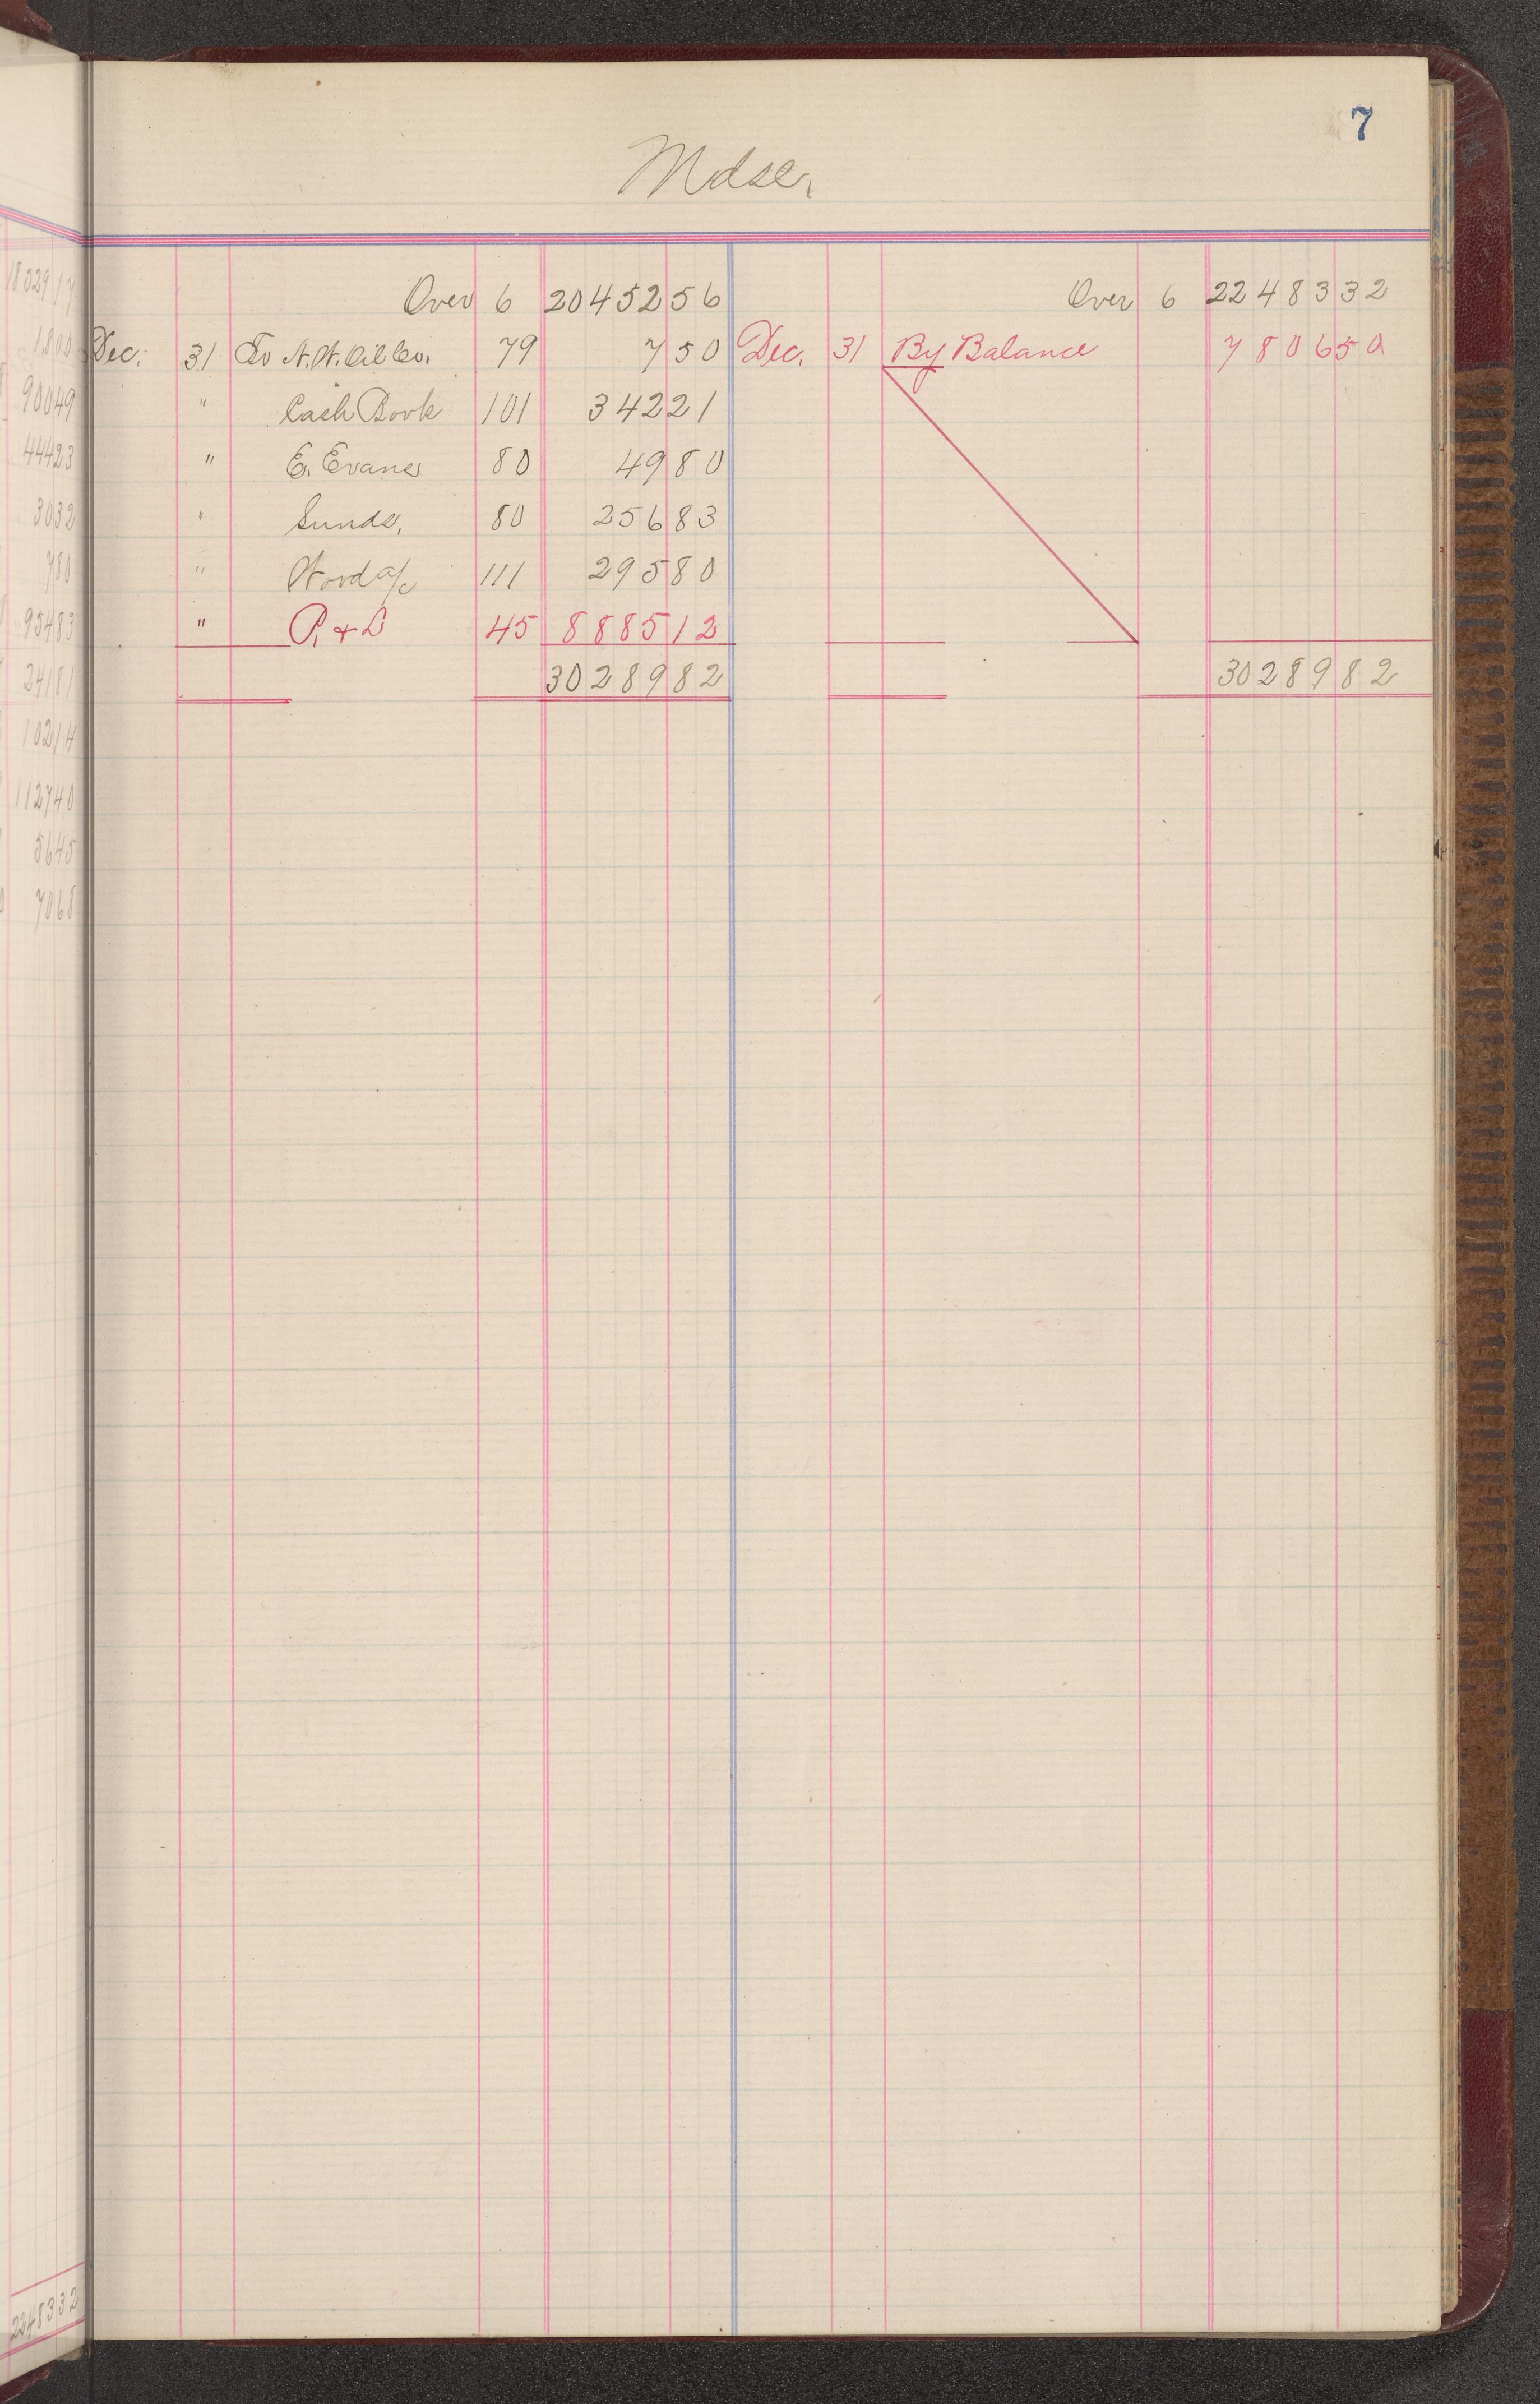 7
Mdse.
Over 6 20452 56 Over 6 22483 32
Dec. 31 To N.W. Oil Co. 79 7 50 Dec. 31 By Balance 7806 50
" Cash Book 101 342 21
" E. Evans 80 49 80
" Sunds. 80 256 83
" Wood a/c 111 295 80
" P. & L 45 8885 12
30289 82 30289 82
18029 17
18 00
900 49
444 23
30 32
7 80
954 83
241 81
102 14
1127 40
56 45
70 68
22483 32